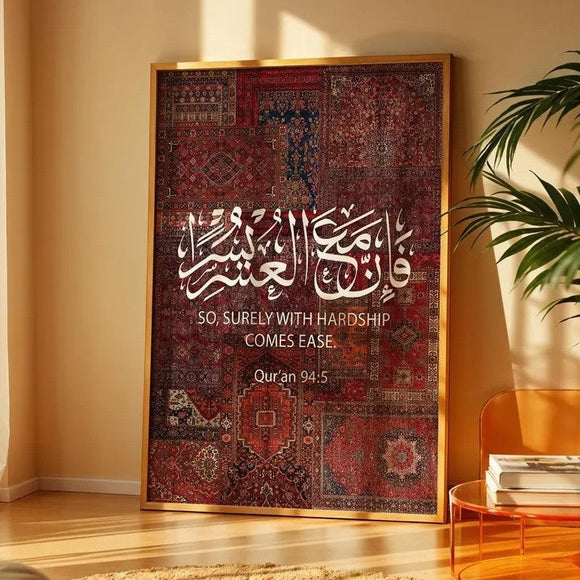 فَإِنَّ مَعَ الْعُسْرِ يُسْرًا
SO, SURELY WITH HARDSHIP
COMES EASE.
Qur'an 94:5